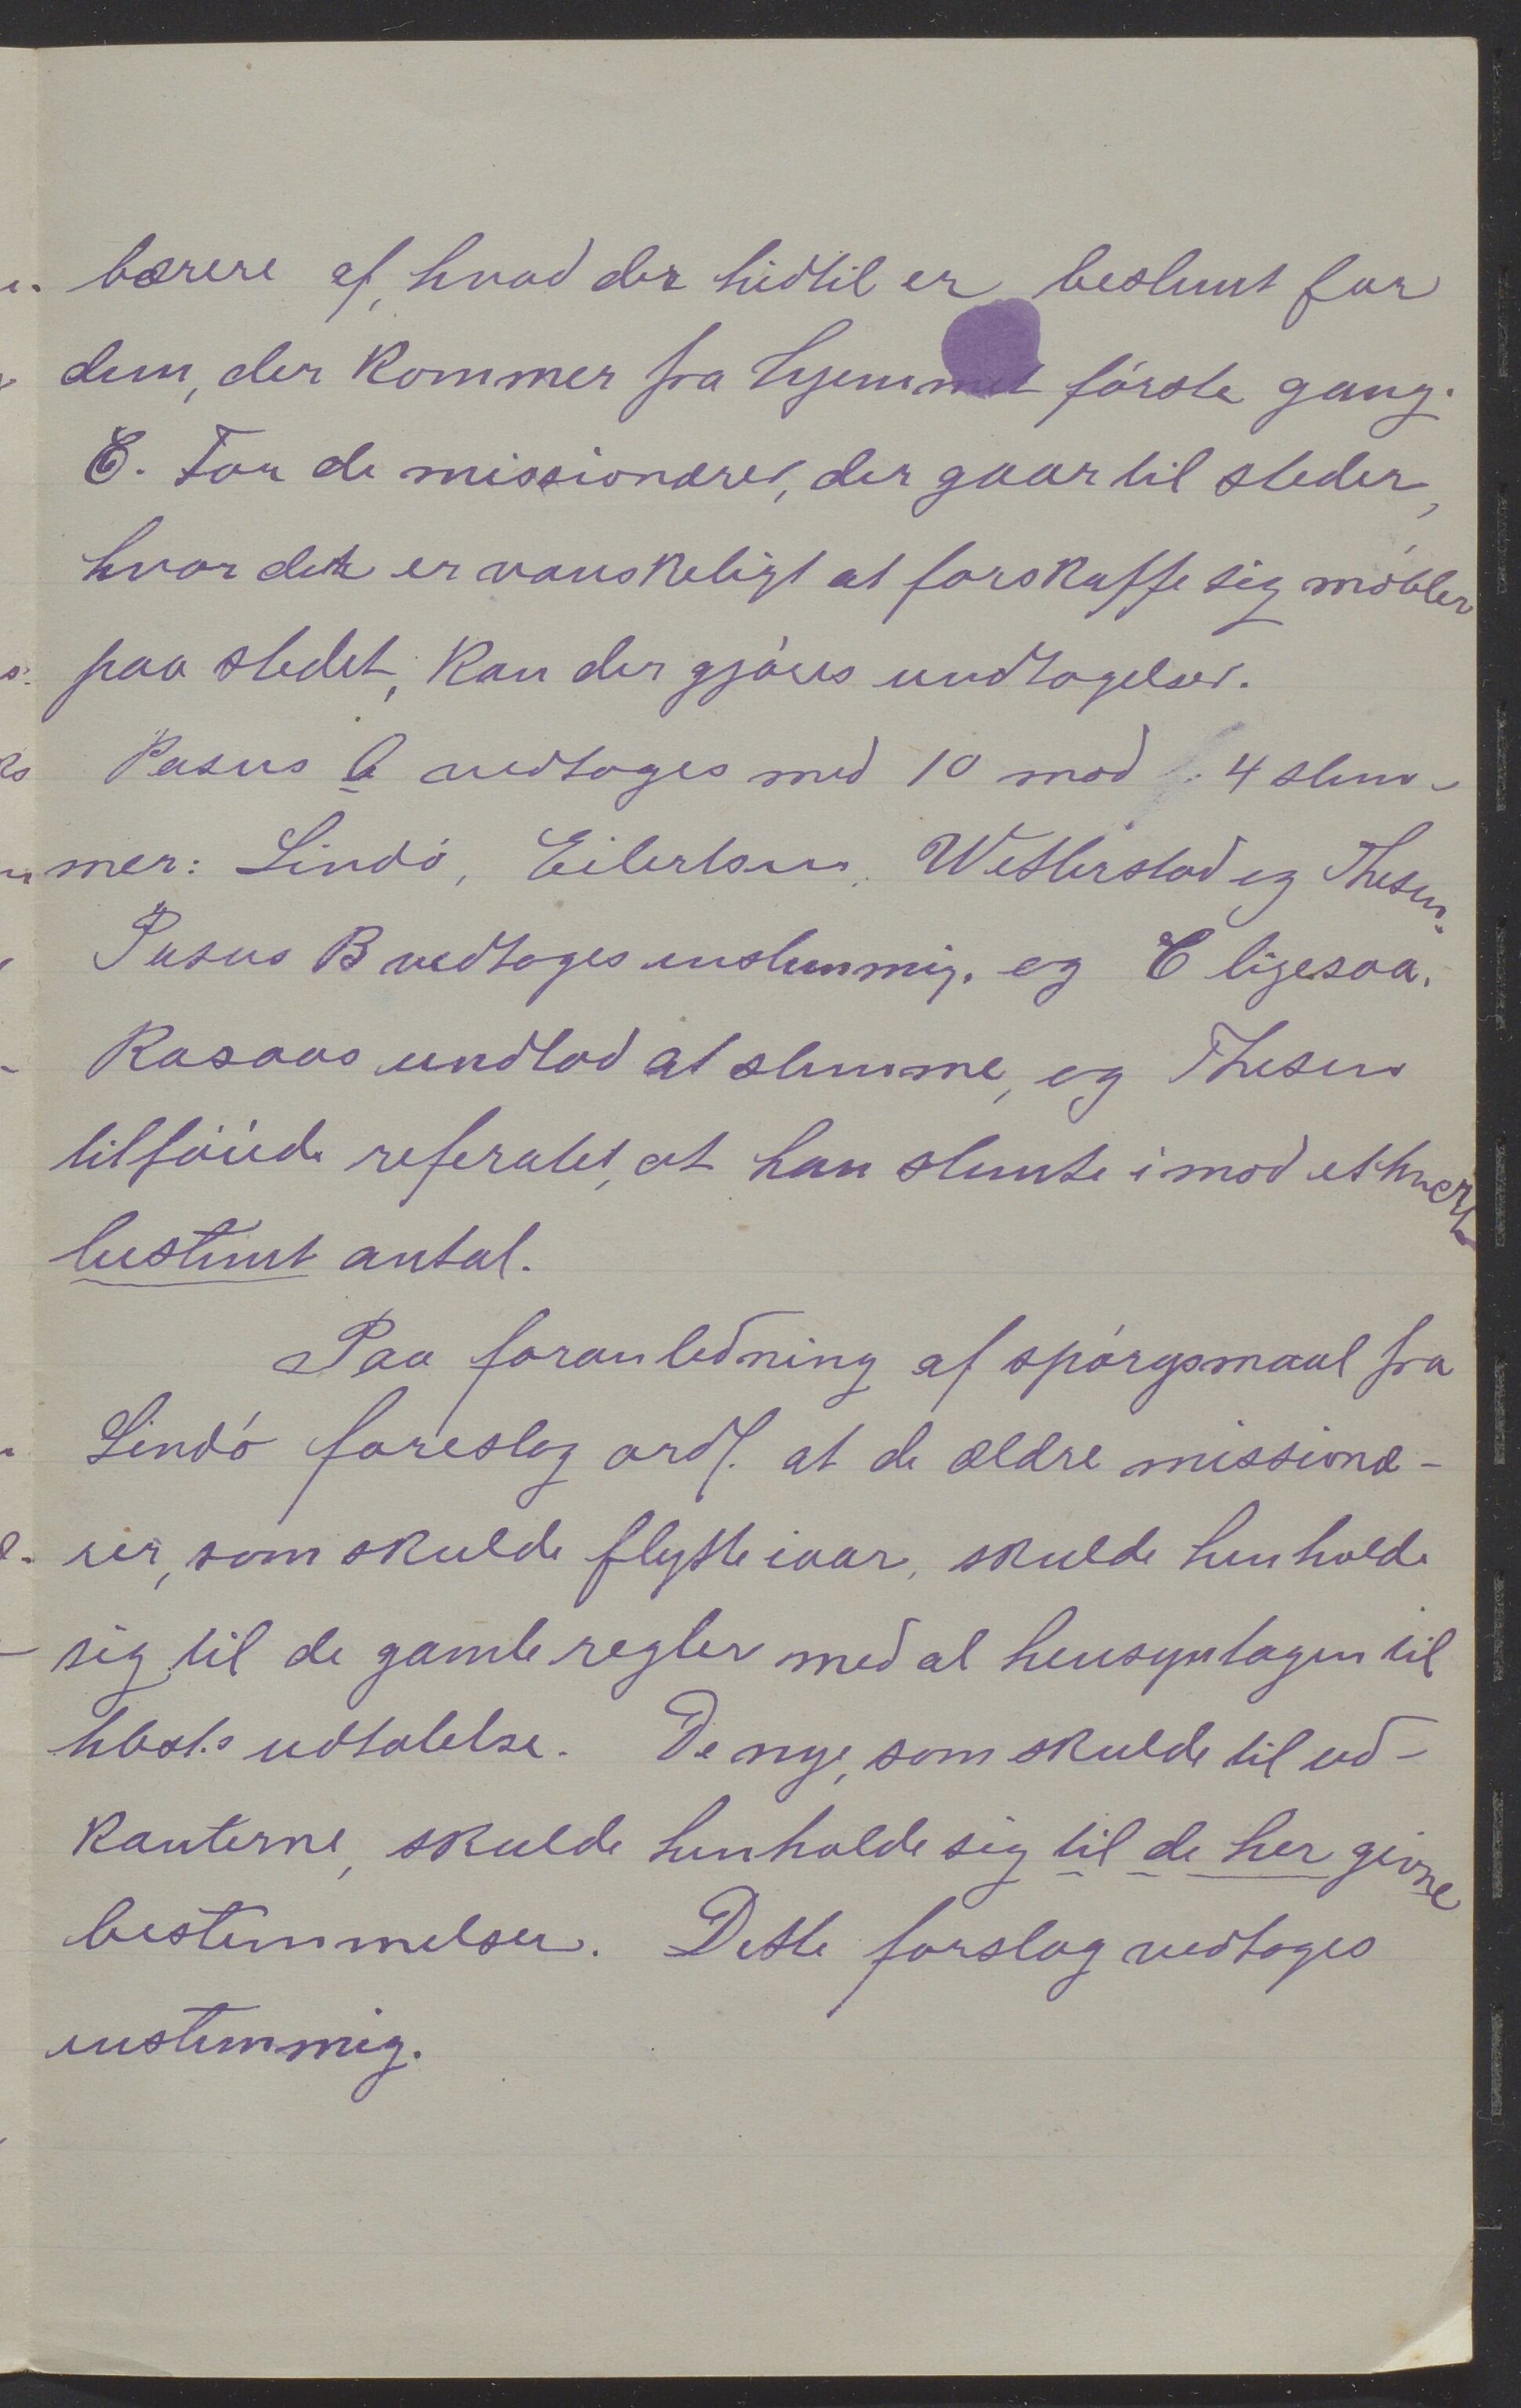 bærere af, hvad der hidtil er bestemt for
dem, der kommer fra hjemmet første gang.
C. For de missionærer, der gaar til steder,
hvor det er vanskeligt at forskaffe sig møbler
paa stedet, kan der gjøres undtagelser.
Pasus a vedtoges med 10 mod 4 stem-
mer: Lindø, Eilertsen, Wetterstad og Thesen.
Pasus B vedtoges enstemmig. og C ligesaa.
Rasaas undlod at stemme, og Thesen
tilføiede referatet, at han stemte imod ethvert
bestemt antal.
Paa foranledning af spørgsmaal fra
Lindø foreslog ordf. at de ældre missionæ-
rer, som skulde flytte iaar, skulde henholde
sig til de gamle regler med al hensyntagen til
hbest.s udtalelse. De nye, som skulde til ud-
kanterne, skulde henholde sig til de her givne
bestemmelser. Dette forslag vedtoges
enstemmig.